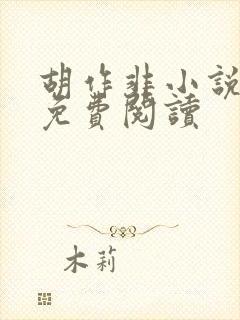 胡作非小說
免費閱讀
木莉